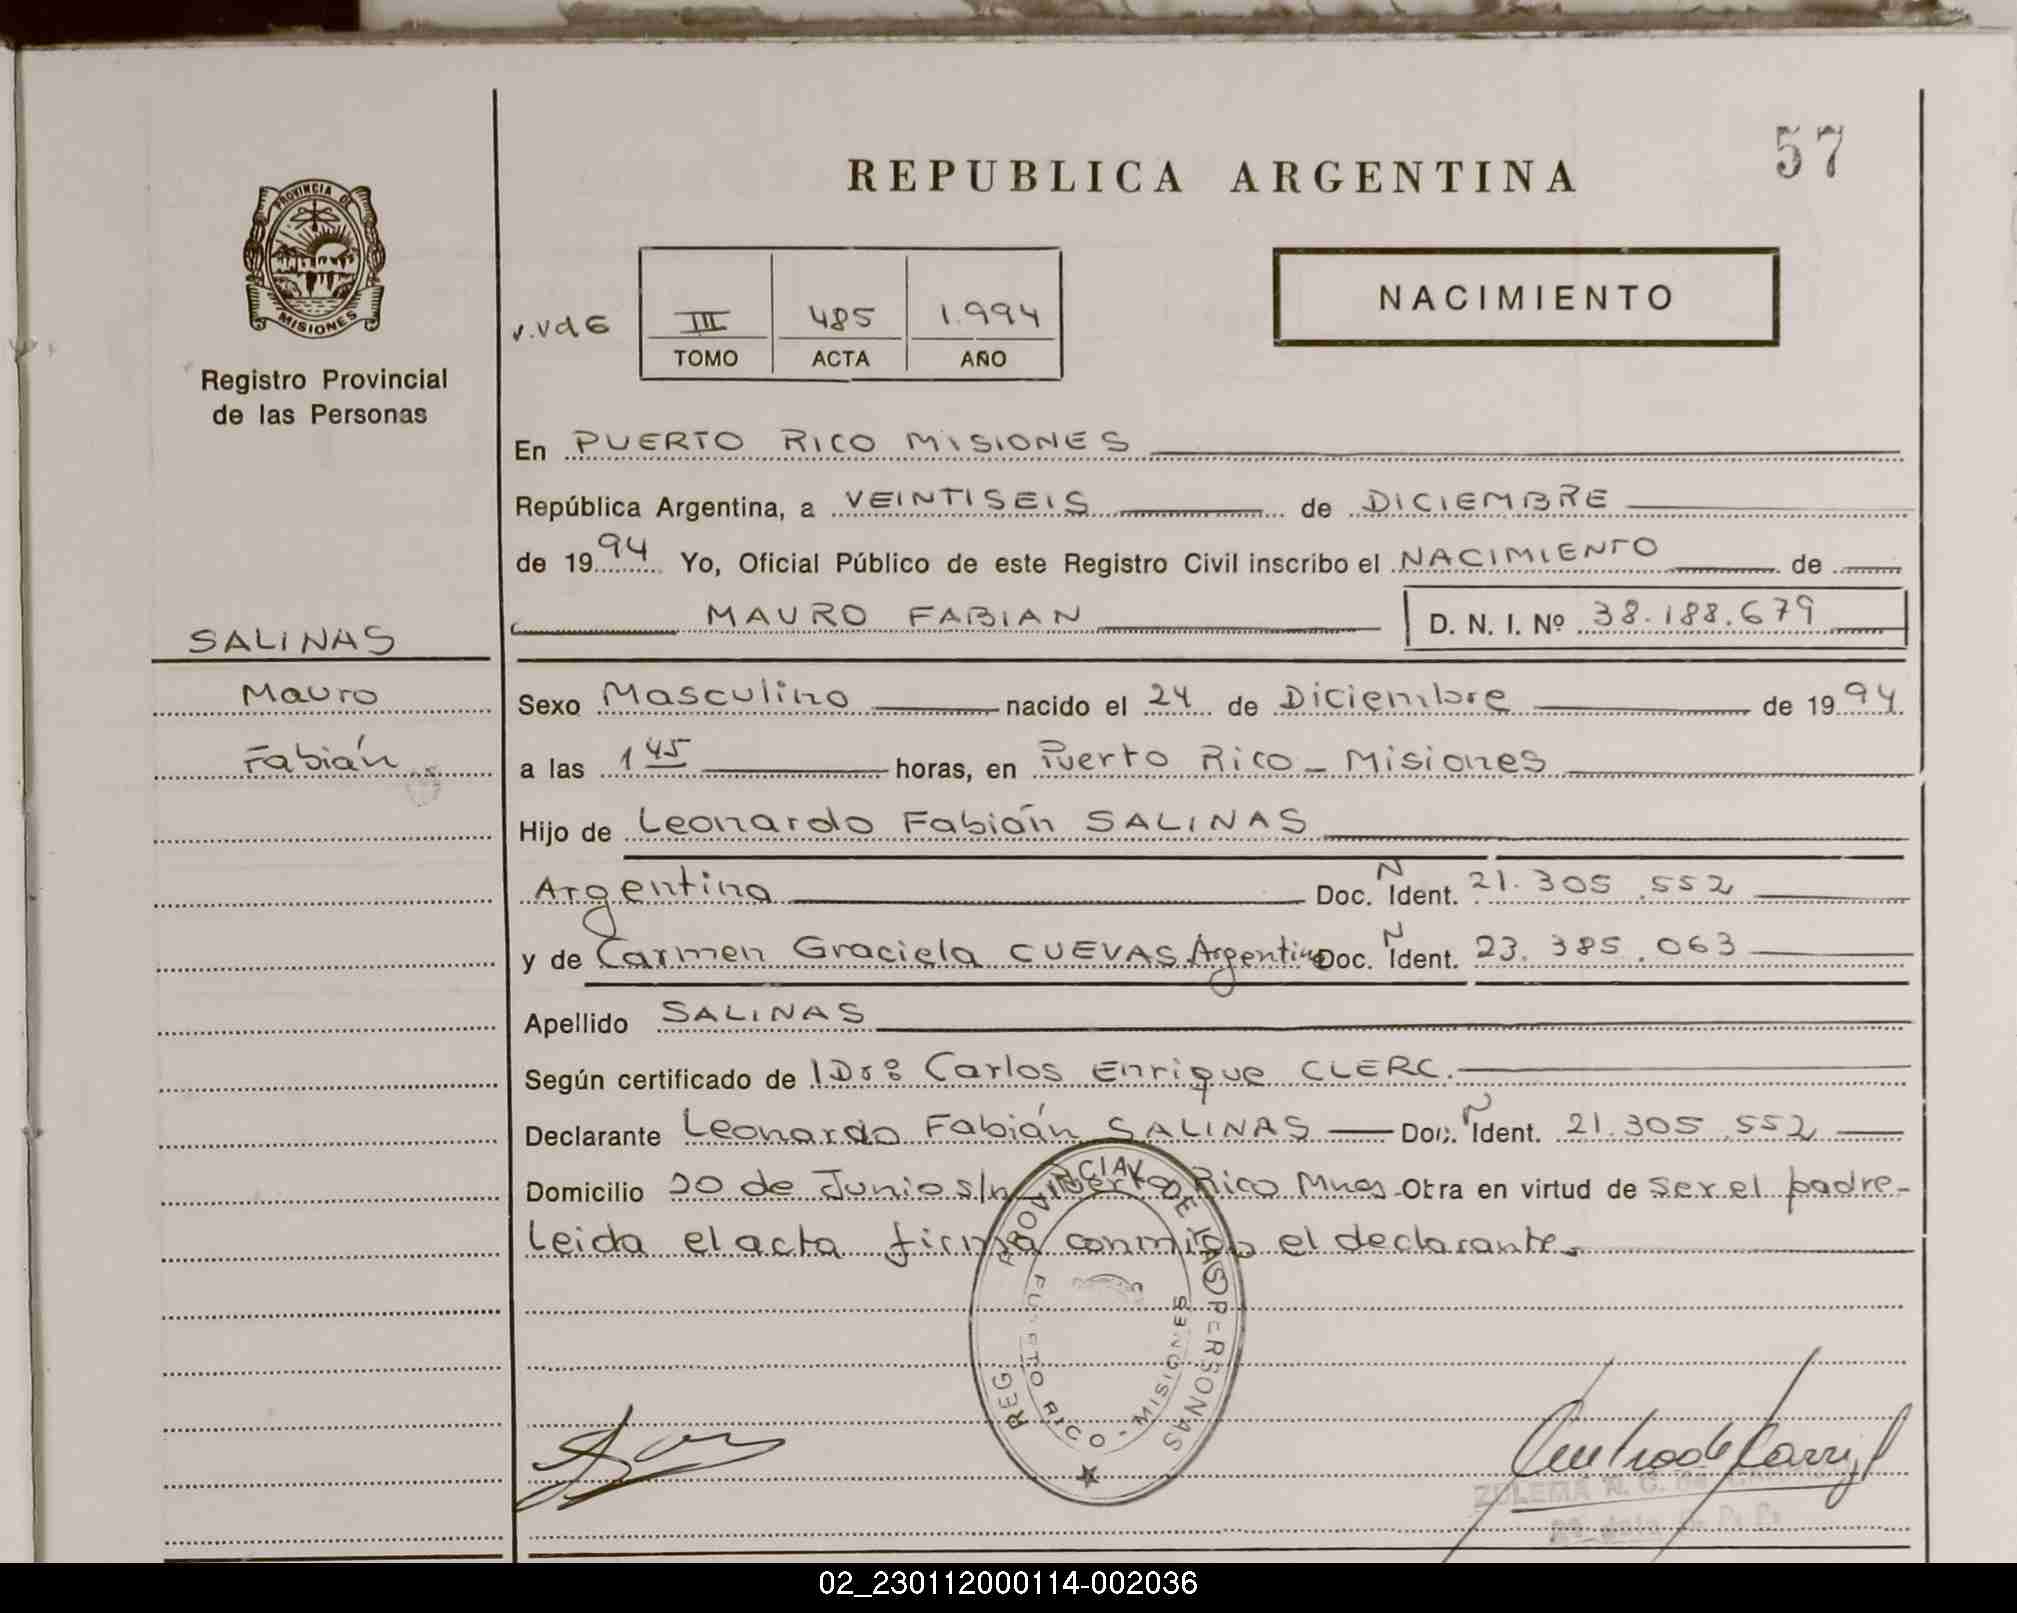 57
REPUBLICA ARGENTINA
PROVINCIA DE
MISIONES
NACIMIENTO
III 485 1.994
TOMO ACTA AÑO
Registro Provincial
de las Personas
En PUERTO RICO MISIONES
República Argentina, a VEINTISEIS de DICIEMBRE
de 1994 Yo, Oficial Público de este Registro Civil inscribo el NACIMIENTO de
MAURO FABIAN D. N. I. Nº 38.188.679
SALINAS
Mauro
Fabián
Sexo Masculino nacido el 24 de Diciembre de 1994
a las 1 45 horas, en Puerto Rico - Misiones
Hijo de Leonardo Fabián SALINAS
Argentina Doc. N Ident. 21.305.552
y de Carmen Graciela CUEVAS Argentina Doc. N Ident. 23.385.063
Apellido SALINAS
Según certificado de Carlos Enrique CLERC.
Declarante Leonardo Fabián SALINAS Doc. N Ident. 21.305.552
Domicilio 20 de Junio s/n Puerto Rico Mnes. Otra en virtud de ser el padre-
Leida el acta firma conmigo el declarante.
REG. PROVINCIAL DE LAS PERSONAS
PUERTO RICO - MISIONES
ZULEMA N. C. de
02_230112000114-002036